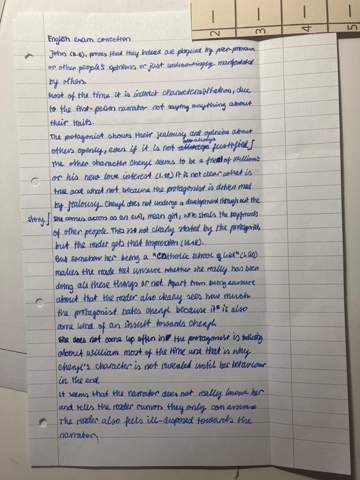 2
3
4
5
English exam correction
John (ll.6), proves that they indeed are plagued by peer-pressure
or other people's opinions or just unknowingly manipulated
by others.
Most of the time it is indirect characterisation, due
to the first-person narrator not saying anything about
their traits.
The protagonist shows their jealousy and opinion about
others openly, even if it is not always justified.
the other character Cheryl seems to be a friend of Williams
or his new love interest It is not clear what is
true and what not because the protagonist is driven mad
by jealousy. Cheryl does not undergo a development throughout the
story
She comes across as an evil, mean girl, who steals the boyfriends
of other people. This is not clearly stated by the protagonist,
but the reader gets that impression
But somehow her being a "Catholic school
makes the reader feel unsure whether she really has been
doing all these things or not. Apart from being unsure
about that the reader also clearly sees how much
the protagonist hates Cheryl because it is also
some kind of an insult towards Cheryl.
She does not come up often in the protagonist is talking
about William most of the time and that is why
Cheryl's character is not revealed until her behaviour
in the end.
It seems that the narrator does not really know her
and tells the reader rumors they only can assume
The reader also feels ill-disposed towards the
narrator,